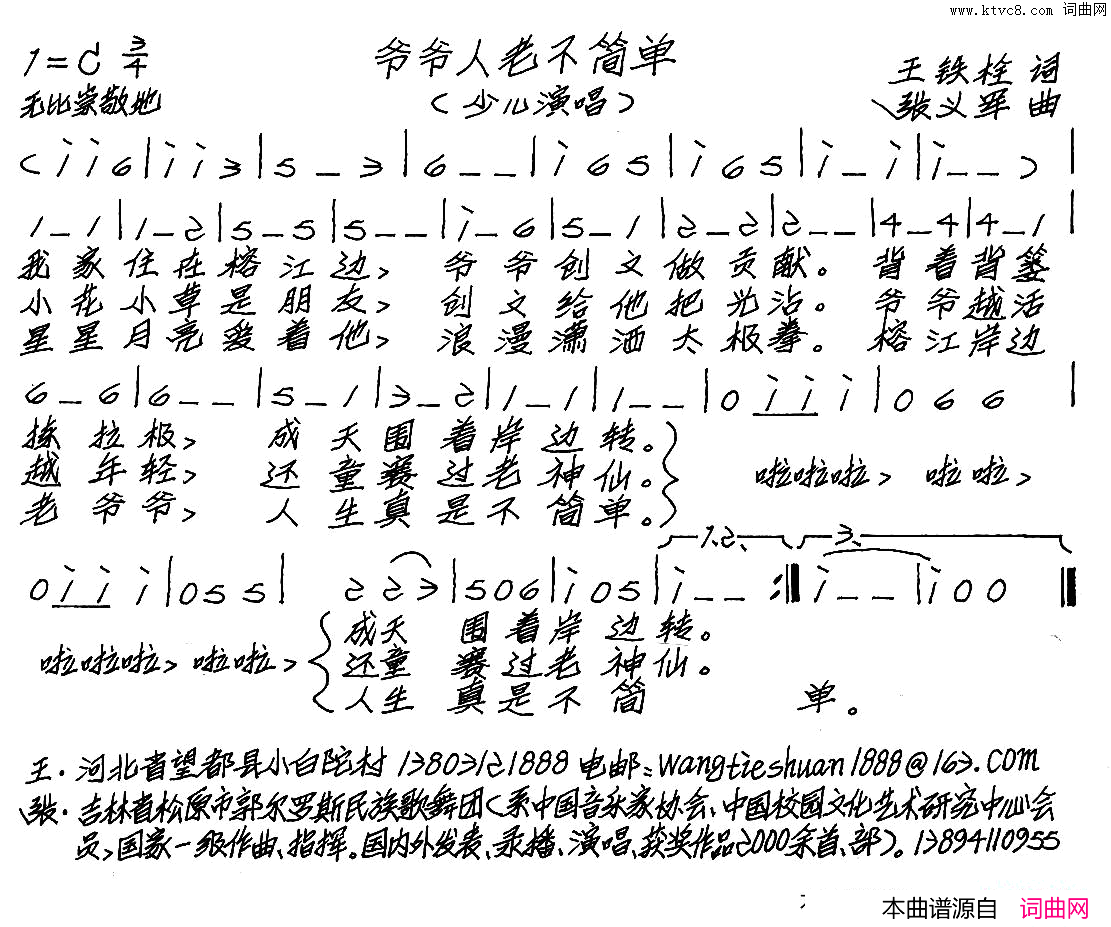 www.ktvc8.com 词曲网
1=C 3/4 爷爷人老不简单 王铁栓 词
无比崇敬地 (少儿演唱) 张义军 曲
(i i 6|i i 3|5 _ 3|6 _ _|i 6 5|i 6 5|i _ i|i _ _ )|
1 _ 1|1 _ 2|5 _ 5|5 _ _|i _ 6|5 _ 1|2 _ 2|2 _ _|4 _ 4|4 _ 1|
我家住在榕江边, 爷爷创文做贡献。背着背篓
小花小草是朋友, 创文给他把光沾。爷爷越活
星星月亮爱着他, 浪漫潇洒太极拳。榕江岸边
6 _ 6|6 _ _|5 _ 1|3 _ 2|1 _ 1|1 _ _|0 i i i|0 6 6|
拣拉极, 成天围着岸边转。
越年轻, 还童赛过老神仙。 啦啦啦, 啦啦,
老爷爷, 人生真是不简单。
1.2. 3.
0 i i i|0 5 5| 2 2 3|5 0 6|i 0 5|i _ _ :‖i _ _|i 0 0‖
成天 围着岸边转。
啦啦啦, 啦啦, 还童 赛过老神仙。
人生 真是不简 单。
王·河北省望都县小白陀村 13803121888 电邮:wangtieshuan1888@163.com
张·吉林省松原市郭尔罗斯民族歌舞团(系中国音乐家协会、中国校园文化艺术研究中心会
员,国家一级作曲、指挥。国内外发表、录播、演唱、获奖作品2000余首、部)。13894110955
本曲谱源自 词曲网